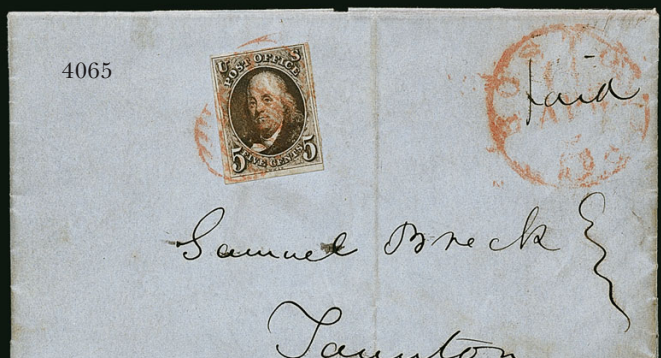 4065
U S
POST OFFICE
5 FIVE CENTS 5
Paid
Samuel Breck Esq
Taunton